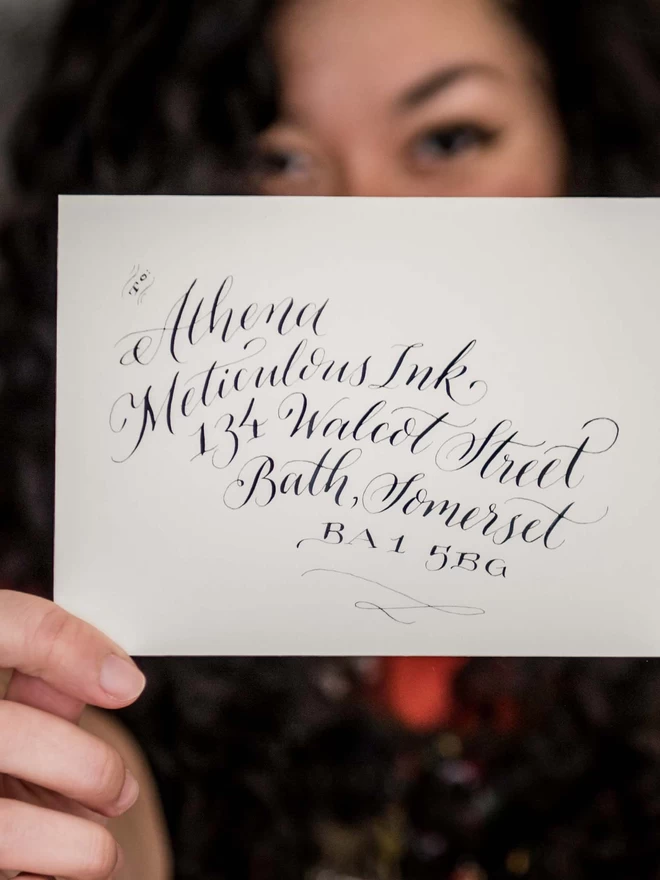 To:
Athena
Meticulous Ink
134 Walcot Street
Bath, Somerset
BA1 5BG